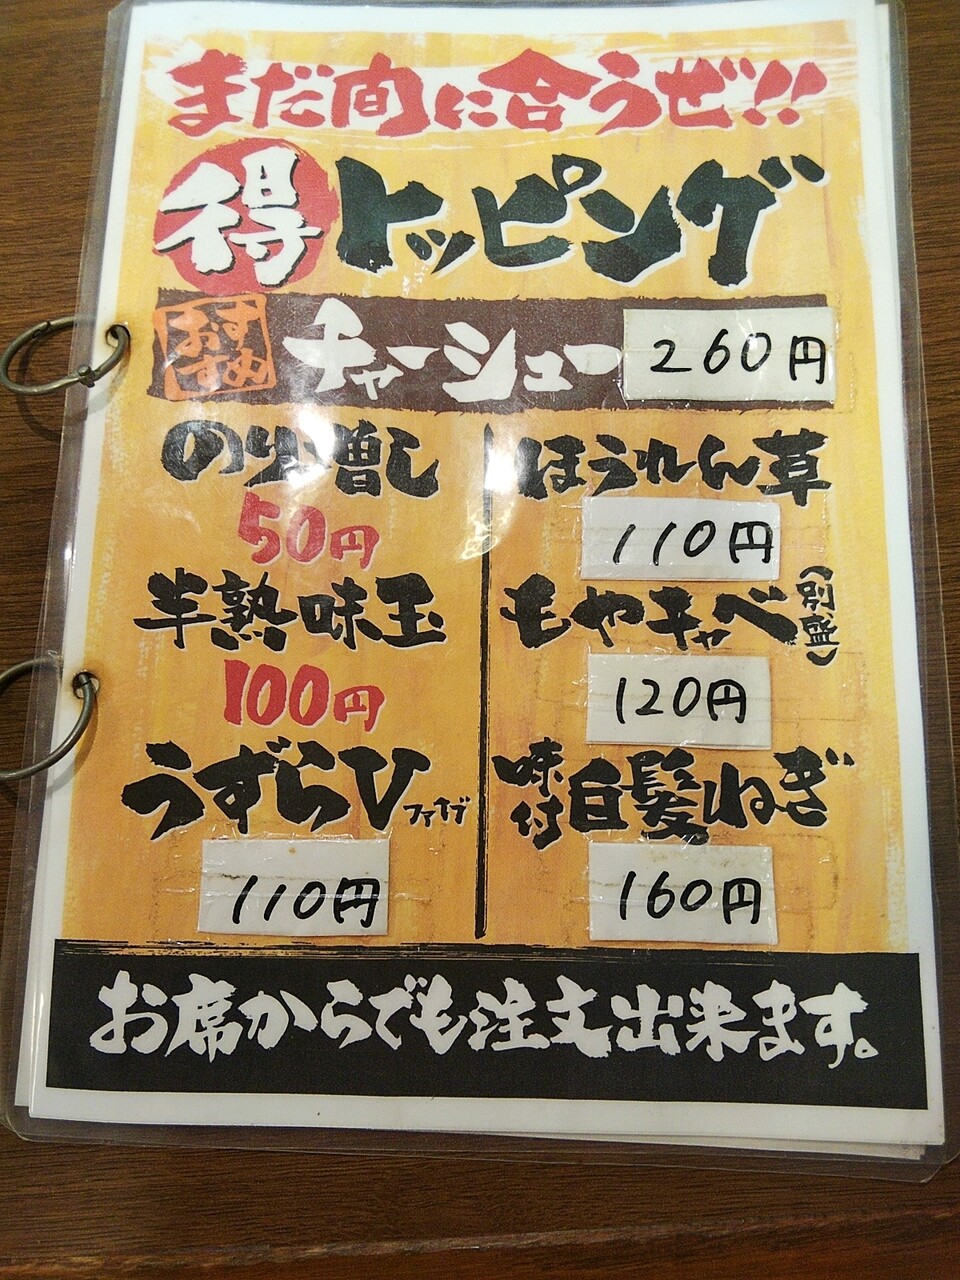 まだ間に合うぜ!!
得トッピング
おすすめ チャーシュー 260円
のり増し
50円
半熟味玉
100円
うずらV ファイブ
110円
ほうれん草
110円
もやキャベ(別盛)
120円
味付白髪ねぎ
160円
お席からでも注文出来ます。